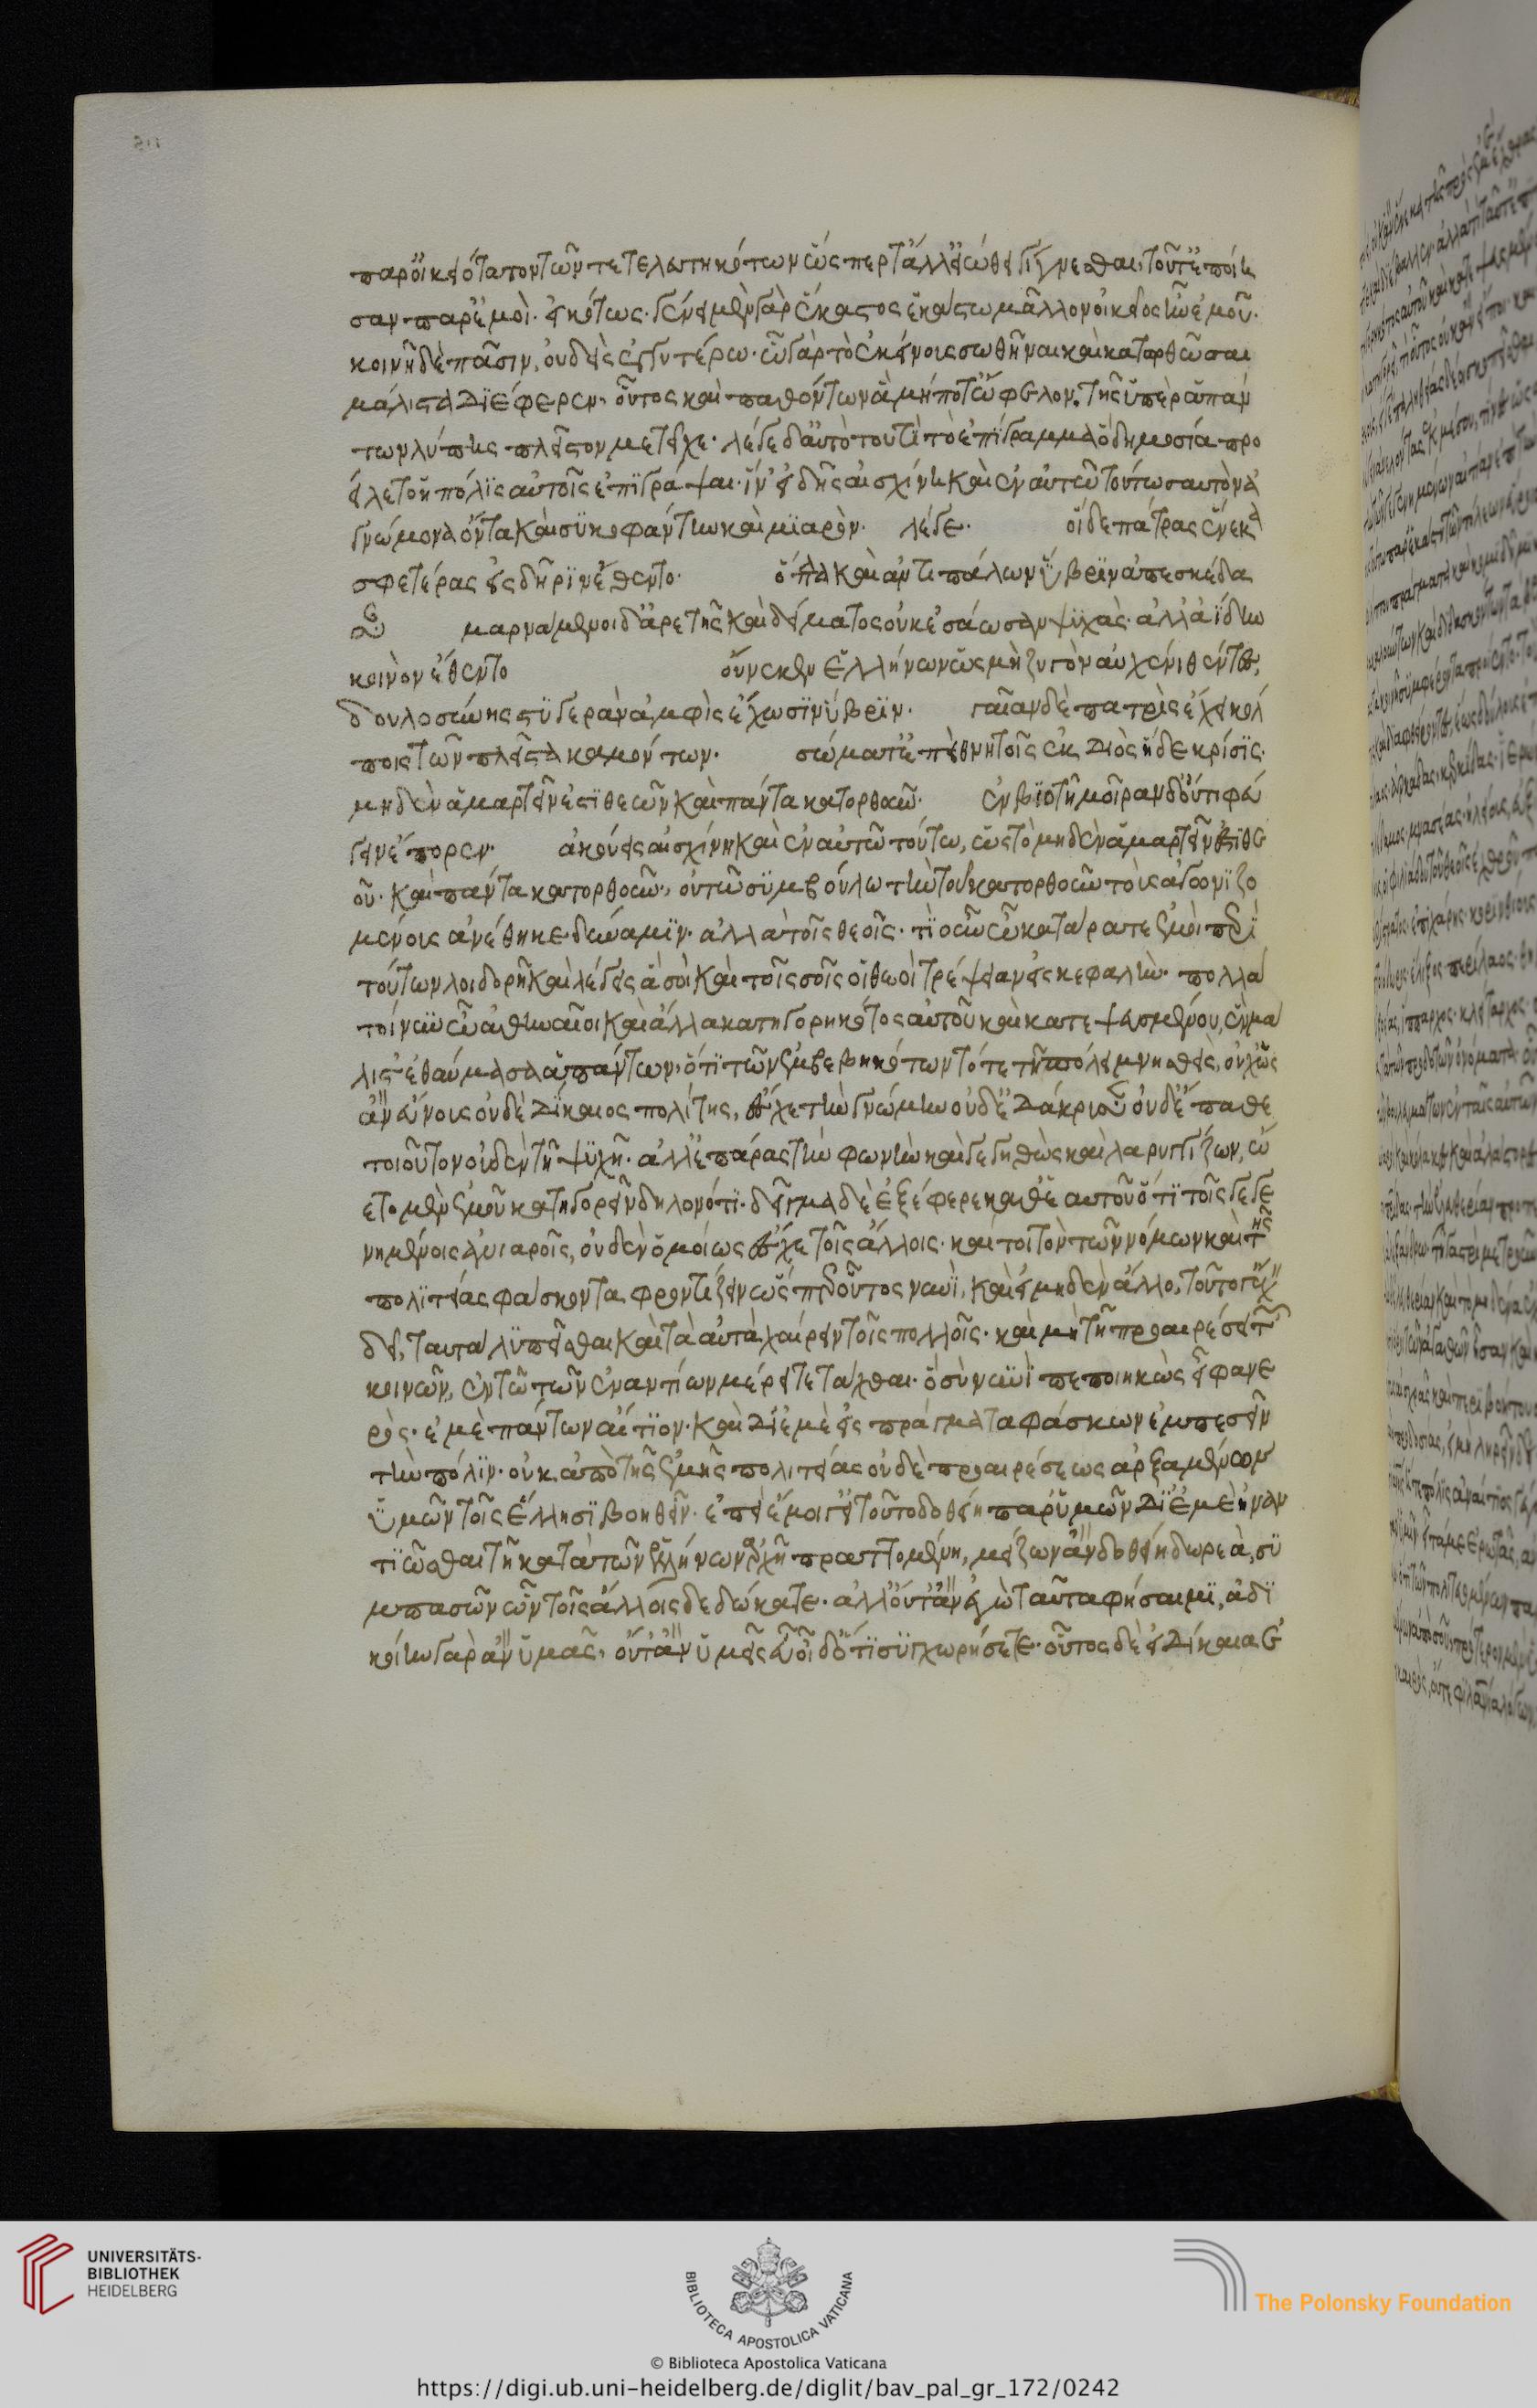 παροικειότατον τῶν τετελευτηκότων ὥσπερ τἄλλ' εἴωθε γίγνεσθαι, τοῦτ' ἐποίη
σαν παρ' ἐμοί. εἰκότως. γένει μὲν γὰρ ἕκαστος ἑκάστω μᾶλλον οἰκεῖος ἦν ἐμοῦ.
κοινῆ δὲ πᾶσιν, οὐδεὶς ἐγγυτέρω. ὧ γὰρ τὸ ἐκείνοις σωθῆναι καὶ κατορθῶσαι
μάλιστα διέφερεν, οὗτος καὶ παθόντων ἃ μήποτ' ὤφελον, τῆς ὑπὲρ ἁπάν
των λύπης πλεῖστον μετεῖχε. λέγε δ' αὐτὸ τουτὶ τὸ ἐπίγραμμα ὃ δημοσία προ
είλετο ἡ πόλις αὐτοῖς ἐπιγράψαι. ἵν' εἰδῆς αἰσχίνη καὶ ἐν αὐτῶ τούτω σαυτὸν ἀ
γνώμονα ὄντα καὶ συκοφάντην καὶ μιαρόν. λέγε. οἵδε πάτρας ἕνεκα
σφετέρας εἰς δῆριν ἔθεντο. ὅπλα καὶ ἀντιπάλων ὕβριν ἀπεσκέδα
μαρνάμενοι δ' ἀρετῆς καὶ δείματος οὐκ ἐσάωσαν ψυχὰς ἀλλ' ἀΐδην
κοινὸν ἔθεντο οὕνεκεν ἑλλήνων ὡς μὴ ζυγὸν αὐχένι θέντες,
δουλοσύνης στυγερὰν ἀμφὶς ἔχωσιν ὕβριν. γαῖαν δὲ πατρὶς ἔχει κόλ
ποις τῶν πλεῖστα καμόντων. σώματ' ἐπεὶ θνητοῖς ἐκ διὸς ἥδε κρίσις.
μηδὲν ἁμαρτεῖν ἐστι θεῶν καὶ πάντα κατορθοῦν. ἐν βιοτῆ μοῖραν δ' οὔτι φυ
γεῖν ἔπορεν. ἀκούεις αἰσχίνη καὶ ἐν αὐτῶ τούτω, ὡς τὸ μηδὲν ἁμαρτεῖν ἐστι θε
οῦ. καὶ πάντα κατορθοῦν, οὐ τῶ συμβούλω τὴν τοῦ κατορθοῦν τοὺς ἀγωνιζο
μένους ἀνέθηκε δύναμιν. ἀλλὰ τοῖς θεοῖς. τί οὖν ὦ κατάρατε ἐμοὶ περὶ
τούτων λοιδορῆ καὶ λέγεις ἃ σοὶ καὶ τοῖς σοῖς οἱ θεοὶ τρέψειαν εἰς κεφαλήν. πολλὰ
τοίνυν ὦ ἄνδρες ἀθηναῖοι καὶ ἄλλα κατηγορηκότος αὐτοῦ καὶ κατεψευσμένου, ἓν μά
λιστ' ἐθαύμασα ἁπάντων. ὅτι τῶν συμβεβηκότων τότε τῆ πόλει μνησθεὶς, οὐχ ὡς
ἂν εὔνους οὐδὲ δίκαιος πολίτης, ἔσχε τὴν γνώμην οὐδ' ἐδάκρυσεν οὐδ' ἔπαθε
τοιοῦτον οὐδὲν τῆ ψυχῆ. ἀλλ' ἐπάρας τὴν φωνὴν καὶ γεγηθὼς καὶ λαρυγγίζων, ὤ
ετο μὲν ἐμοῦ κατηγορεῖν δηλονότι. δεῖγμα δὲ ἐξέφερε καθ' ἑαυτοῦ ὅτι τοῖς γεγε
νημένοις ἀνιαροῖς, οὐδὲν ὁμοίως ἔσχε τοῖς ἄλλοις. καίτοι τὸν τῶν νόμων καὶ τῆς
πολιτείας φάσκοντα φροντίζειν ὥσπερ οὗτος νυνὶ, καὶ εἰ μηδὲν ἄλλο, τοῦτο γ' ἔχειν
δεῖ, ταυτὰ λυπεῖσθαι καὶ τὰ αὐτὰ χαίρειν τοῖς πολλοῖς. καὶ μὴ τῆ προαιρέσει τῶν
κοινῶν, ἐν τῶ τῶν ἐναντίων μέρει τετάχθαι. ὃ σὺ νυνὶ πεποιηκὼς εἶ φανε
ρὸς. ἐμὲ πάντων αἴτιον. καὶ δι' ἐμὲ εἰς πράγματα φάσκων ἐμπεσεῖν
τὴν πόλιν. οὐκ ἀπὸ τῆς ἐμῆς πολιτείας οὐδὲ προαιρέσεως ἀρξαμένων
ὑμῶν τοῖς ἕλλησι βοηθεῖν. ἐπεὶ ἔμοιγ' εἰ τοῦτο δοθείη παρ' ὑμῶν δι' ἐμὲ ἠναν
τιῶσθαι τῆ κατὰ τῶν ἑλλήνων ἀρχῆ πραττομένη, μείζων ἂν δοθείη δωρεὰ, συ
μπασῶν ὧν τοῖς ἄλλοις δεδώκατε. ἀλλ' οὔτ' ἂν ἐγὼ ταῦτα φήσαιμι, ἀδι
κοίην γὰρ ἂν ὑμᾶς, οὔτ' ἂν ὑμεῖς εὖ οἶδ' ὅτι συγχωρήσετε. οὗτος δὲ εἰ δίκαια ἐ
UNIVERSITÄTS-
BIBLIOTHEK
HEIDELBERG
BIBLIOTECA APOSTOLICA VATICANA
The Polonsky Foundation
© Biblioteca Apostolica Vaticana
https://digi.ub.uni-heidelberg.de/diglit/bav_pal_gr_172/0242